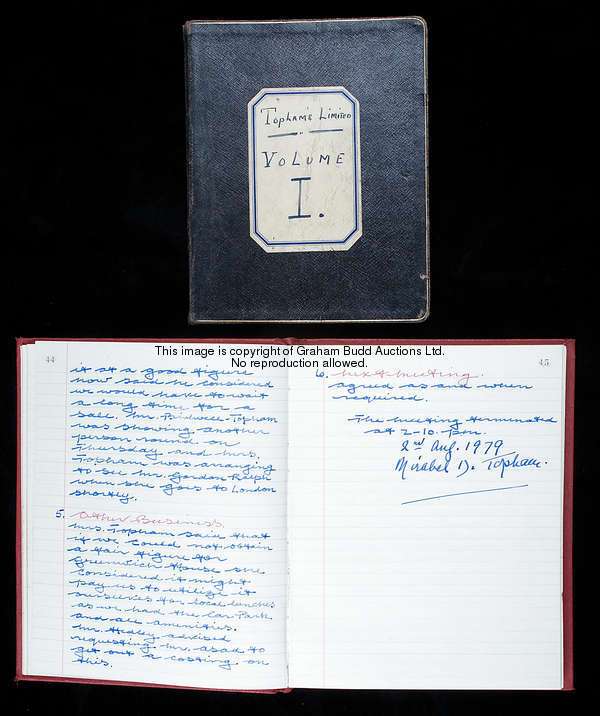 Topham's Limited
VOLUME
I.
This image is copyright of Graham Budd Auctions Ltd.
No reproduction allowed.
44
it at a good figure
now said he considered
we would have to wait
a long time for a
sale. Mr. Bidwell-Topham
was showing another
person round on
Thursday and Mrs.
Topham was arranging
to see Mr. Gordon Ralph
when she goes to London
shortly.
5. Other Business
Mrs. Topham said that
if we could not obtain
a fair figure for
Greenwich House she
considered it might
pay us to utilize it
ourselves for local lunches
as we had the Car Park
and all amenities.
Mr. Hedley advised
requesting Mr. Asad to
get out a costing on
this.
45
6. Next Meeting.
agreed as and when
required.
The meeting terminated
at 2-10. p.m.
2nd Aug. 1979
Mirabel D. Topham.